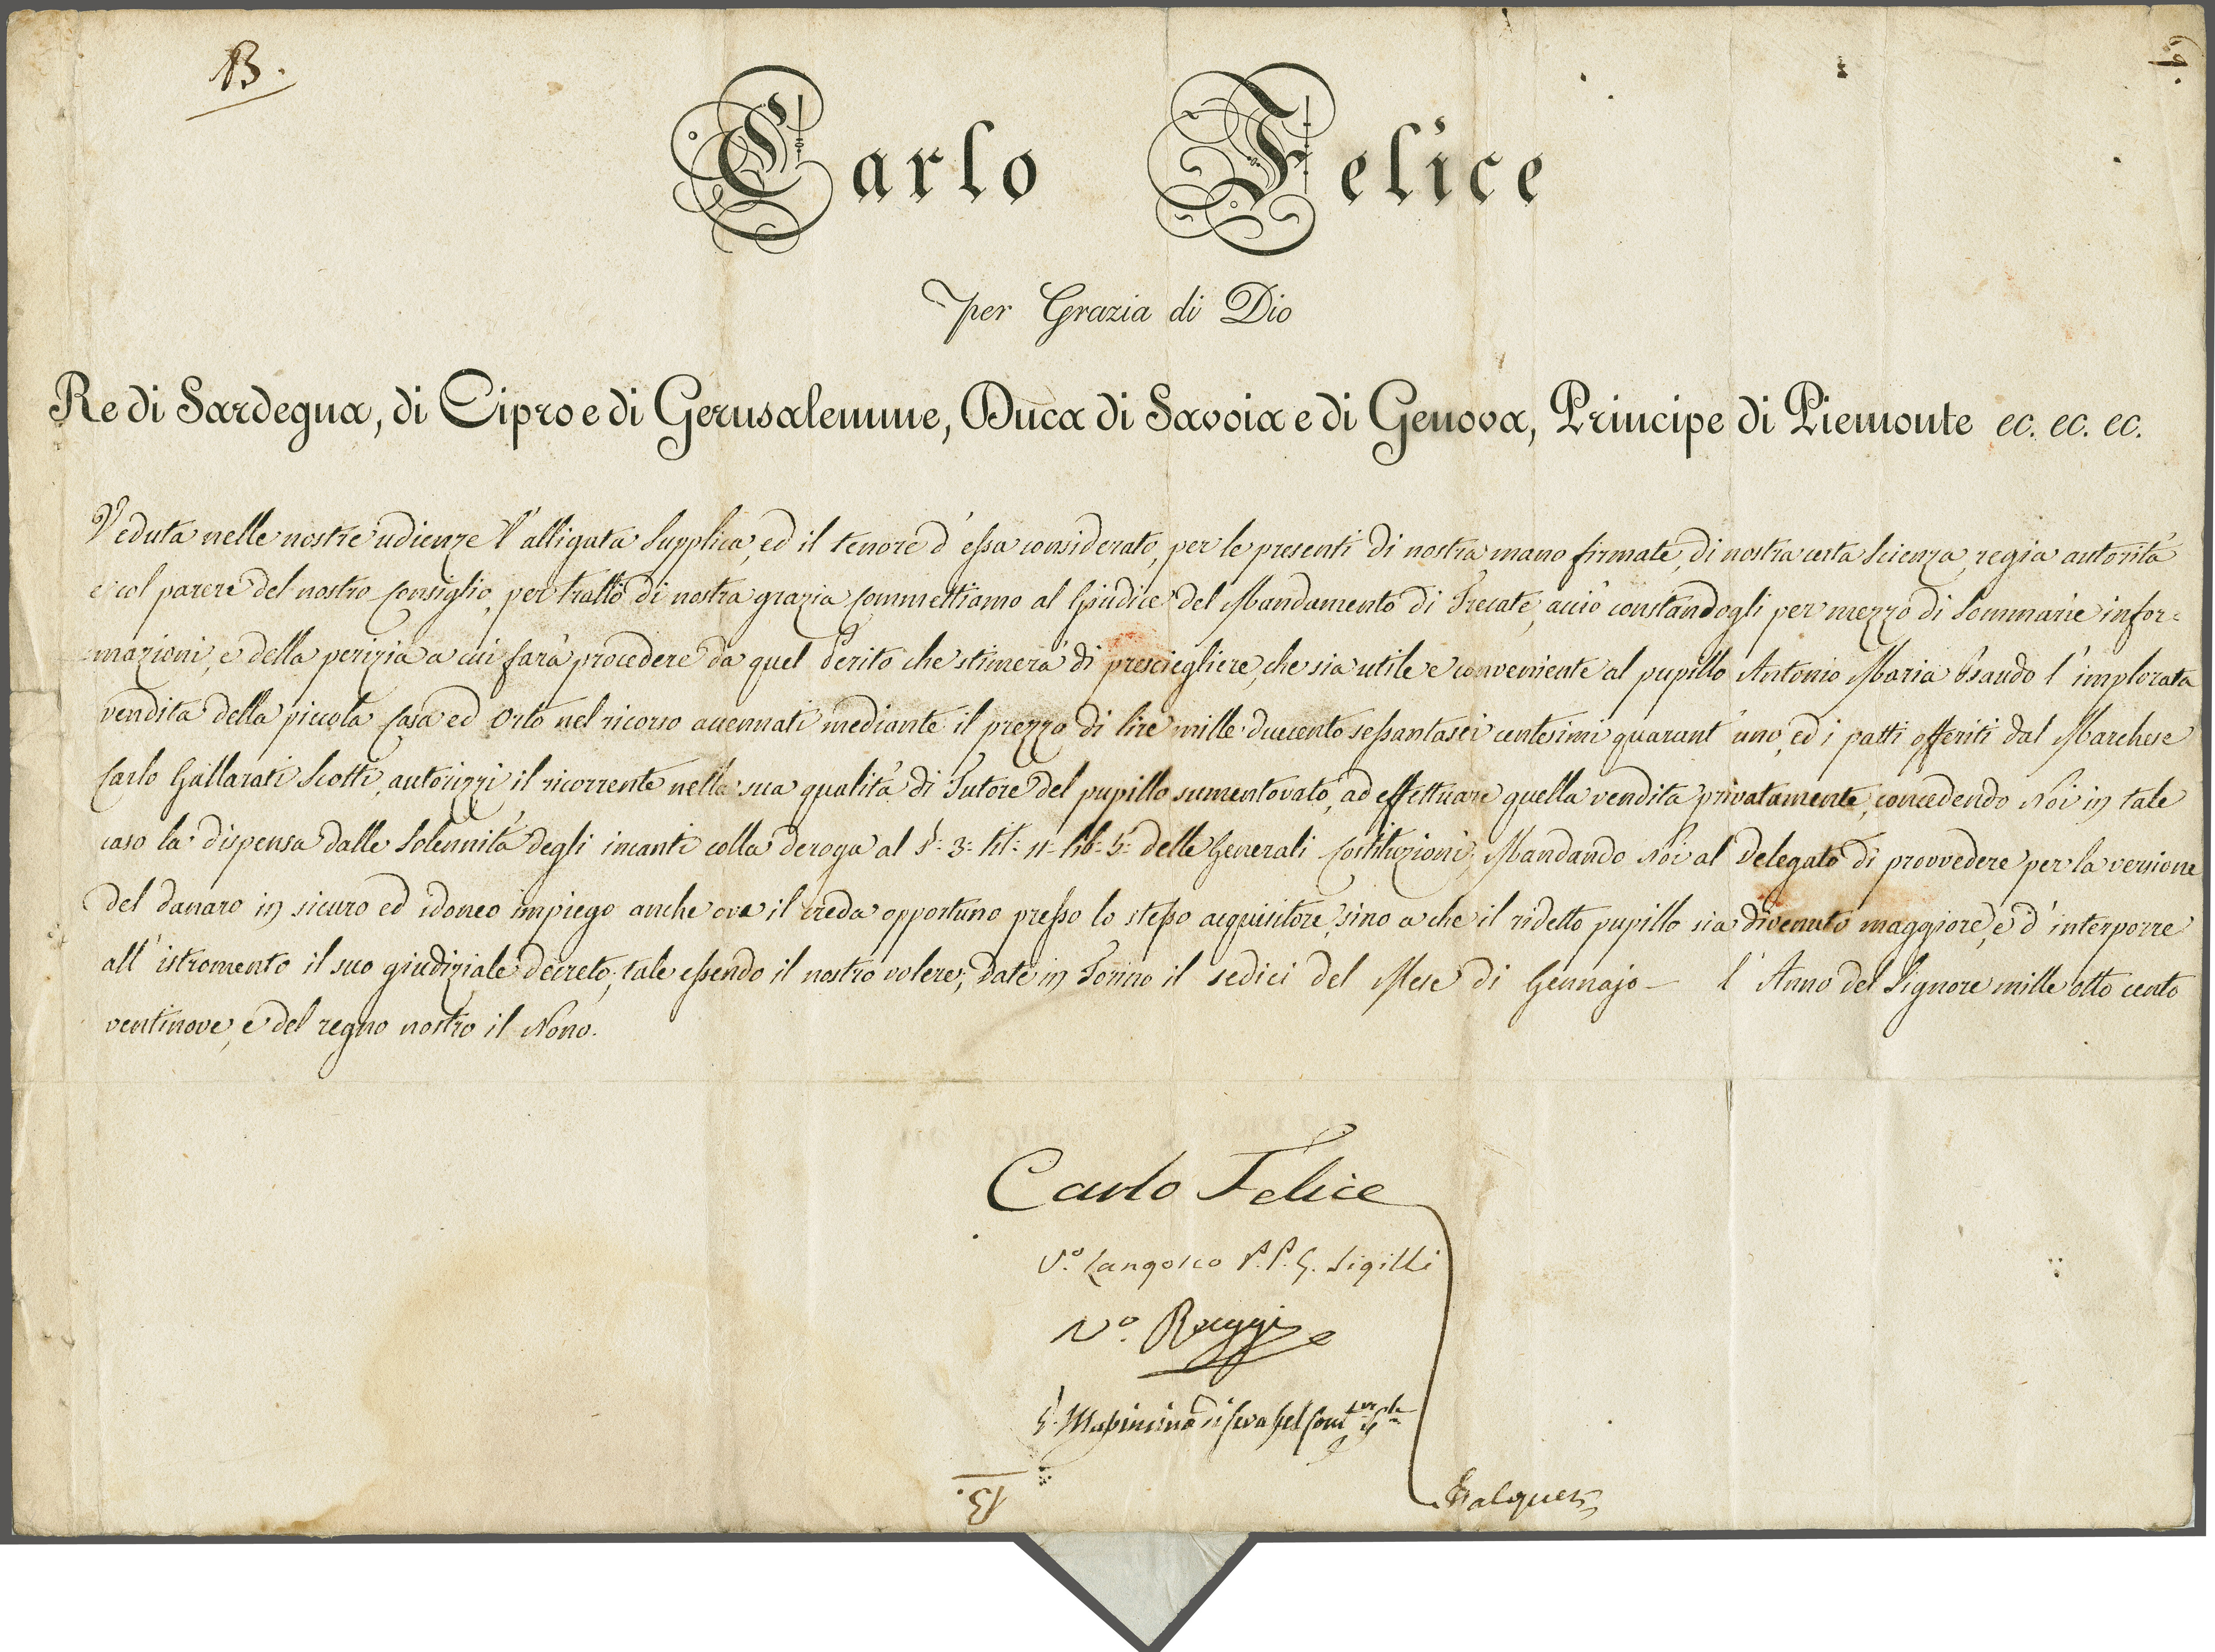 B.
Carlo Felice
per Grazia di Dio
Re di Sardegna, di Cipro e di Gerusalemme, Duca di Savoia e di Genova, Principe di Piemonte ec. ec. ec.
Veduta nelle nostre udienze l'alligata Supplica, ed il tenore d'essa considerato, per le presenti di nostra mano firmate, di nostra certa Scienza, regia autorità
e col parere del nostro Consiglio, per tratto di nostra grazia Commettiamo al Giudice del Mandamento di Trecate, acciò constandogli per mezzo di Sommarie infor=
mazioni, e della perizia a cui farà procedere da quel Perito che stimerà di presciegliere, che sia utile e conveniente al pupillo Antonio Maria l'implorata
vendita della piccola Casa ed Orto nel ricorso accennati mediante il prezzo di lire mille duecento sessantasei centesimi quarant'uno, ed i patti offeriti dal Marchese
Carlo Gallarati Scotti, autorizzi il ricorrente nella sua qualità di Tutore del pupillo sumentovato, ad effettuare quella vendita privatamente, concedendo Noi in tale
caso la dispensa dalle Solennità degli incanti colla deroga al §: 3: tit: 11: lib: 5: delle Generali Costituzioni; Mandando Noi al Delegato di provvedere per la versione
del danaro in sicuro ed idoneo impiego anche ove il creda opportuno presso lo stesso acquisitore, sino a che il ridetto pupillo sia divenuto maggiore, e d'interporre
all'istromento il suo giudiziale decreto; tale essendo il nostro volere; Date in Torino il sedici del Mese di Gennajo l'Anno del Signore mille otto cento
ventinove, e del regno nostro il Nono.
Carlo Felice
V.º Langosco P.P.G. Sigilli
V.º Roggi
13.